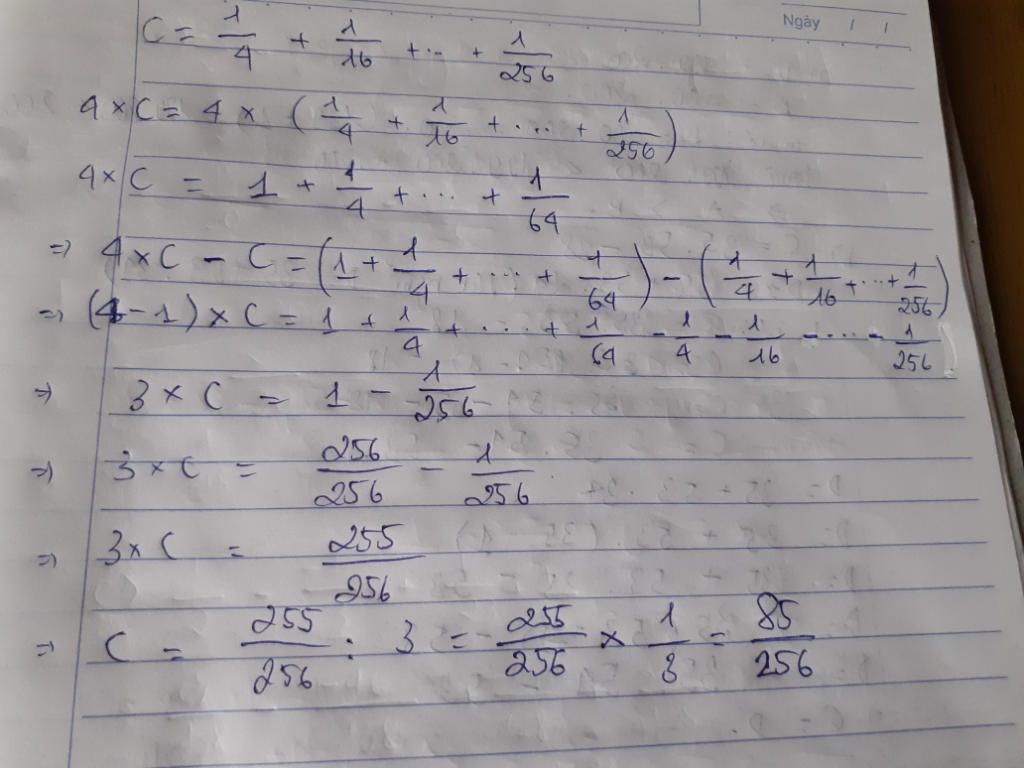 Ngày / /
C = 1/4 + 1/16 + ... + 1/256
4 × C = 4 × (1/4 + 1/16 + ... + 1/256)
4 × C = 1 + 1/4 + ... + 1/64
=> 4 × C - C = (1 + 1/4 + ... + 1/64) - (1/4 + 1/16 + ... + 1/256)
=> (4 - 1) × C = 1 + 1/4 + ... + 1/64 - 1/4 - 1/16 - ... - 1/256
=> 3 × C = 1 - 1/256
=> 3 × C = 256/256 - 1/256
=> 3 × C = 255/256
=> C = 255/256 : 3 = 255/256 × 1/3 = 85/256